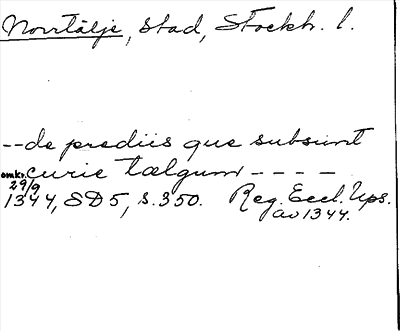 Norrtälje, stad, Stockh. l.
--de prediis que subsunt
omkr. curie tælgum ----
29/9
1344, SD5, s.350. Reg. Eccl. Ups.
av 1344.